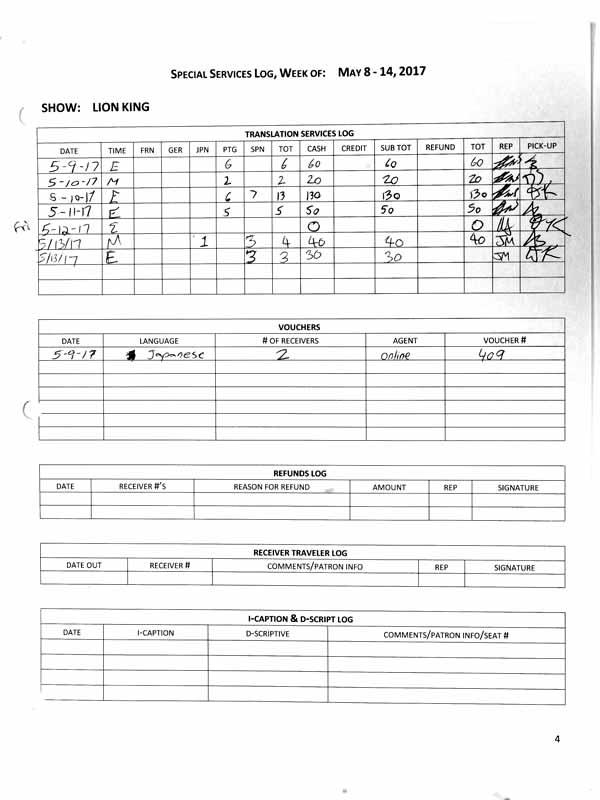 SPECIAL SERVICES LOG, WEEK OF: MAY 8 - 14, 2017
SHOW: LION KING
TRANSLATION SERVICES LOG
DATE TIME FRN GER JPN PTG SPN TOT CASH CREDIT SUB TOT REFUND TOT REP PICK-UP
5-9-17 E 6 6 60 60 60
5-10-17 M 2 2 20 20 20
5-10-17 E 6 7 13 130 130 130
5-11-17 E 5 5 50 50 50
Fri 5-12-17 E 0 0
5/13/17 M 1 3 4 40 40 40 JM
5/13/17 E 3 3 30 30 JM
VOUCHERS
DATE LANGUAGE # OF RECEIVERS AGENT VOUCHER #
5-9-17 Japanese 2 Online 409
REFUNDS LOG
DATE RECEIVER #'S REASON FOR REFUND AMOUNT REP SIGNATURE
RECEIVER TRAVELER LOG
DATE OUT RECEIVER # COMMENTS/PATRON INFO REP SIGNATURE
I-CAPTION & D-SCRIPT LOG
DATE I-CAPTION D-SCRIPTIVE COMMENTS/PATRON INFO/SEAT #
4